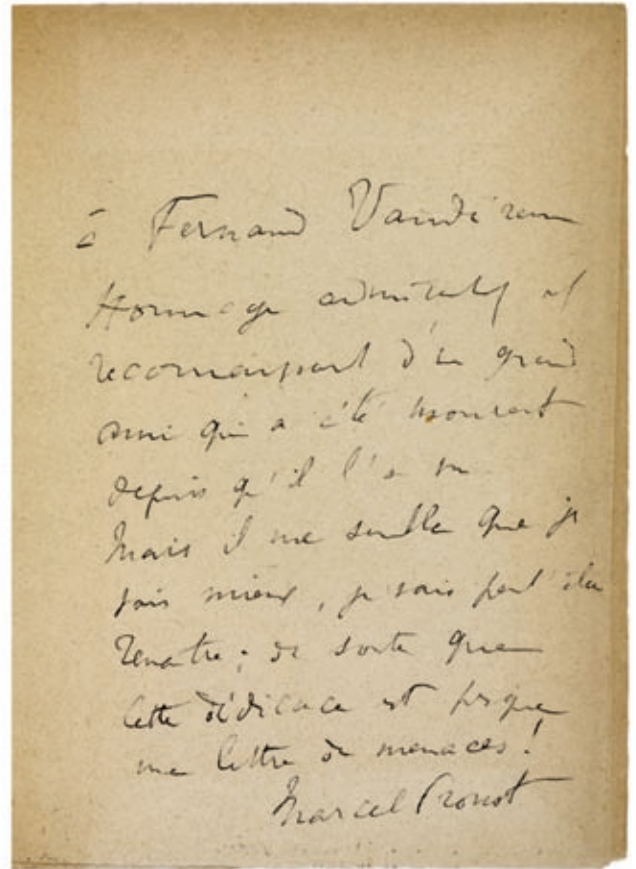 à Fernand Vandérem
Hommage admiratif et
reconnaissant d'un grand
ami qui a été mourant
depuis qu'il l'a vu
Mais il me semble que je
vais mieux, je vais peut être
renaître ; de sorte que
cette dédicace est presque
une lettre de menaces !
Marcel Proust